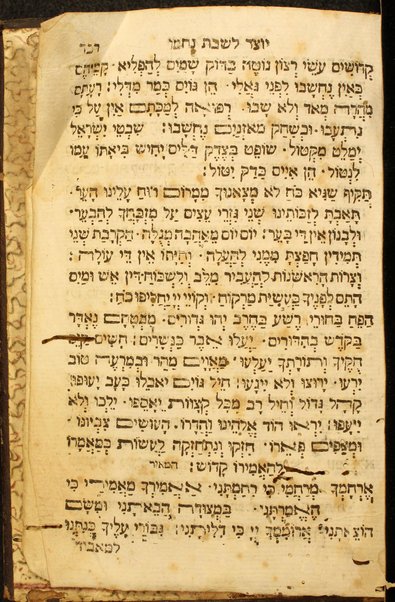 יוצר לשבת נחמו רכד
קְדוֹשִׁים עֹשֵׂי רְצוֹן נוֹטֶה בַדּוֹק שָׁמַיִם לְהַפְלִיא׃ קָמֵיהֶם
כְּאַיִן נֶחְשְׁבוּ לִפְנֵי גֹאֲלִי׃ הֵן גּוֹיִם כְּמַר מִדְּלִי׃ רָעָתָם
מְאֹד וְלֹא שבו׃ רפואה לְמַכָּתָם אֵין עַל כִּי
נתעבו׃ וּבְשַׁחַק מֹאזְנַיִם נֶחְשָׁבוּ׃ שִׁבְטֵי יִשְׂרָאֵל
יְמַלֵּט מִקָּטוֹל׃ שׁוֹפֵט בְּצֶדֶק דַּלִּים יָחִישׁ בִּיאָתוֹ עַמּוֹ
לִנְטוֹל׃ הֵן אִיִּים כַּדַּק יִטּוֹל׃
תַּקִּיף שַׂגִּיא כֹחַ לֹא מְצָאנוּךָ מִמָּרוֹם רוּחַ עָלֵינוּ הֶעֱר׃
תָּאַבְתָּ לְזַכּוֹתֵינוּ שְׁנֵי גִזְרֵי עֵצִים עַל מִזְבַּחֲךָ לְהַבְעֵר׃
וּלְבָנוֹן אֵין דֵּי בָּעֵר׃ יוֹם יוֹם מֵאַהֲבָה מְגֻלָּה׃ הַקְרָבַת שְׁנֵי
תְמִידִין חָפַצְתָּ מִמֶּנִּי לְהַעֲלֶה׃ וְחַיָּתוֹ אֵין דֵּי עוֹלָה׃
וְצָרוֹת הָרִאשׁוֹנוֹת לְהַעֲבִיר מִלֵּב וְלִשְׁכּוֹחַ׃ דִּין אֵשׁ וּמַיִם
הָתֵם לְפָנֶיךָ כַּעֲשִׂיַּית מִרְקוֹחַ׃ וְקוֹיֵי יְיָ יַחֲלִיפוּ כֹחַ׃
הַפַּח בַּחוּרַי׃ רֶשַׁע בַּחֶרֶב יְהוּ גְדוּרִים׃ מִבְטָחָם נֶאְדָּר
בַּקֹּדֶשׁ בַּהֲדוּרִים׃ יַעֲלוּ אֵבֶר כַּנְּשָׁרִים׃ חָשִׁים
חֻקֶּיךָ וְתוֹרָתְךָ יַעֲלְעוּ׃ מְאַוִּים מַהֵר וּבְמִרְעֶה טוֹב
יִרְעוּ׃ יָרוּצוּ וְלֹא יִיגָעוּ׃ חֵיל גּוֹיִם יֹאבֵלוּ כָּעָב יְעוּפוּ׃
קָהָל גָּדוֹל וְחַיִל רָב מִכָּל קְצָווֹת יֵאָסֵפוּ׃ יֵלְכוּ וְלֹא
יִיעָפוּ׃ יִרְאוּ הוֹד אֱלֹהֵינוּ וַהֲדָרוֹ׃ הָעוֹשִׂים צִבְיוֹנוֹ
וּמְצַפִּים פְּאֵרוֹ׃ חִזְקוּ וְנִתְחַזְּקָה לַעֲשׂוֹת כְּמַאֲמָרוֹ
לְהַאֲמִירוֹ קָדוֹשׁ׃ המאיר
אֲרַחֲמְךָ מְרַחֲמִי כִּי רִחַמְתָּנִי׃ אַאֲמִירְךָ מַאֲמִירִי כִּי
הֶאֱמַרְתָּנִי׃ בִּמְצוּדָה הֲבֵאתַנִי וּמִשָּׁם
הוֹצֵאתַנִי׃ אֲרוֹמִמְךָ יְיָ כִּי דִלִּיתָנִי׃ גִּבּוֹרֵי עָלֶיךָ כְּנִתְּנוּ
למאביד